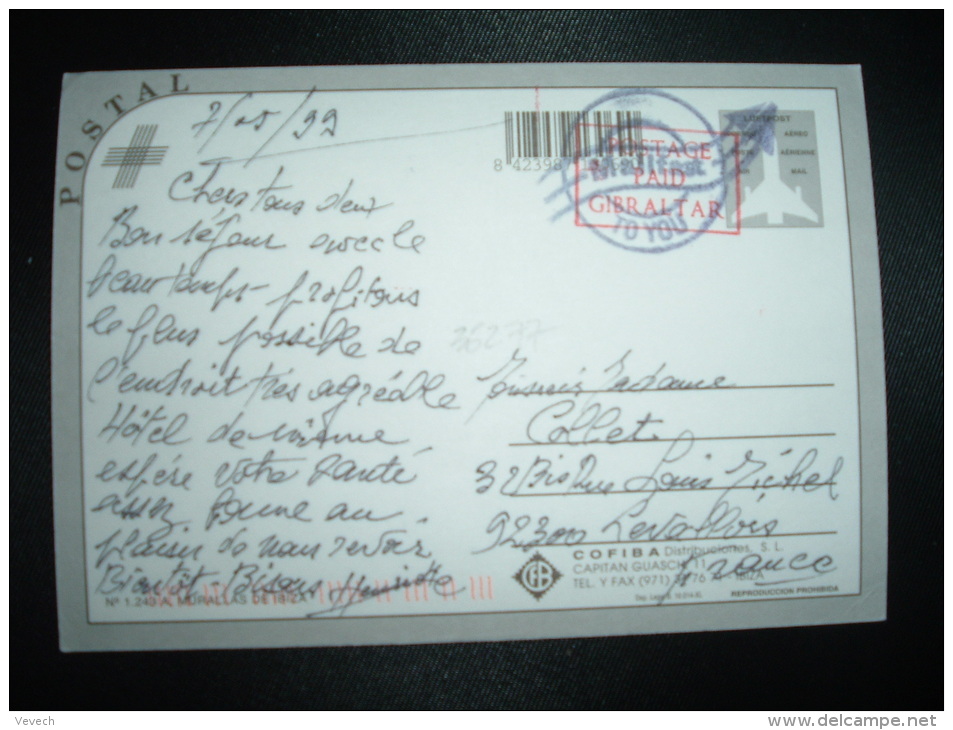 POSTAL
7/05/99
Chers tous deux
Bon séjour avec le
beau temps - profitons
le plus possible de
l'endroit très agréable
Hôtel de même
espère votre santé
assez bonne au
plaisir de vous revoir
Bientôt - Bises Henriette
Nº 1.240 A. MURALLAS DE IBIZA
8 42398
POSTAGE
PAID
GIBRALTAR
TO YOU
LUFTPOST
AEREO
AÉRIENNE
AIR MAIL
36277
Monsieur Madame
Collet
32 Bis Rue Louis Michel
92300 Levallois
France
COFIBA Distribuciones, S. L.
CAPITAN GUASCH, 11
TEL. Y FAX (971) IBIZA
REPRODUCCION PROHIBIDA
Vevech
www.delcampe.net